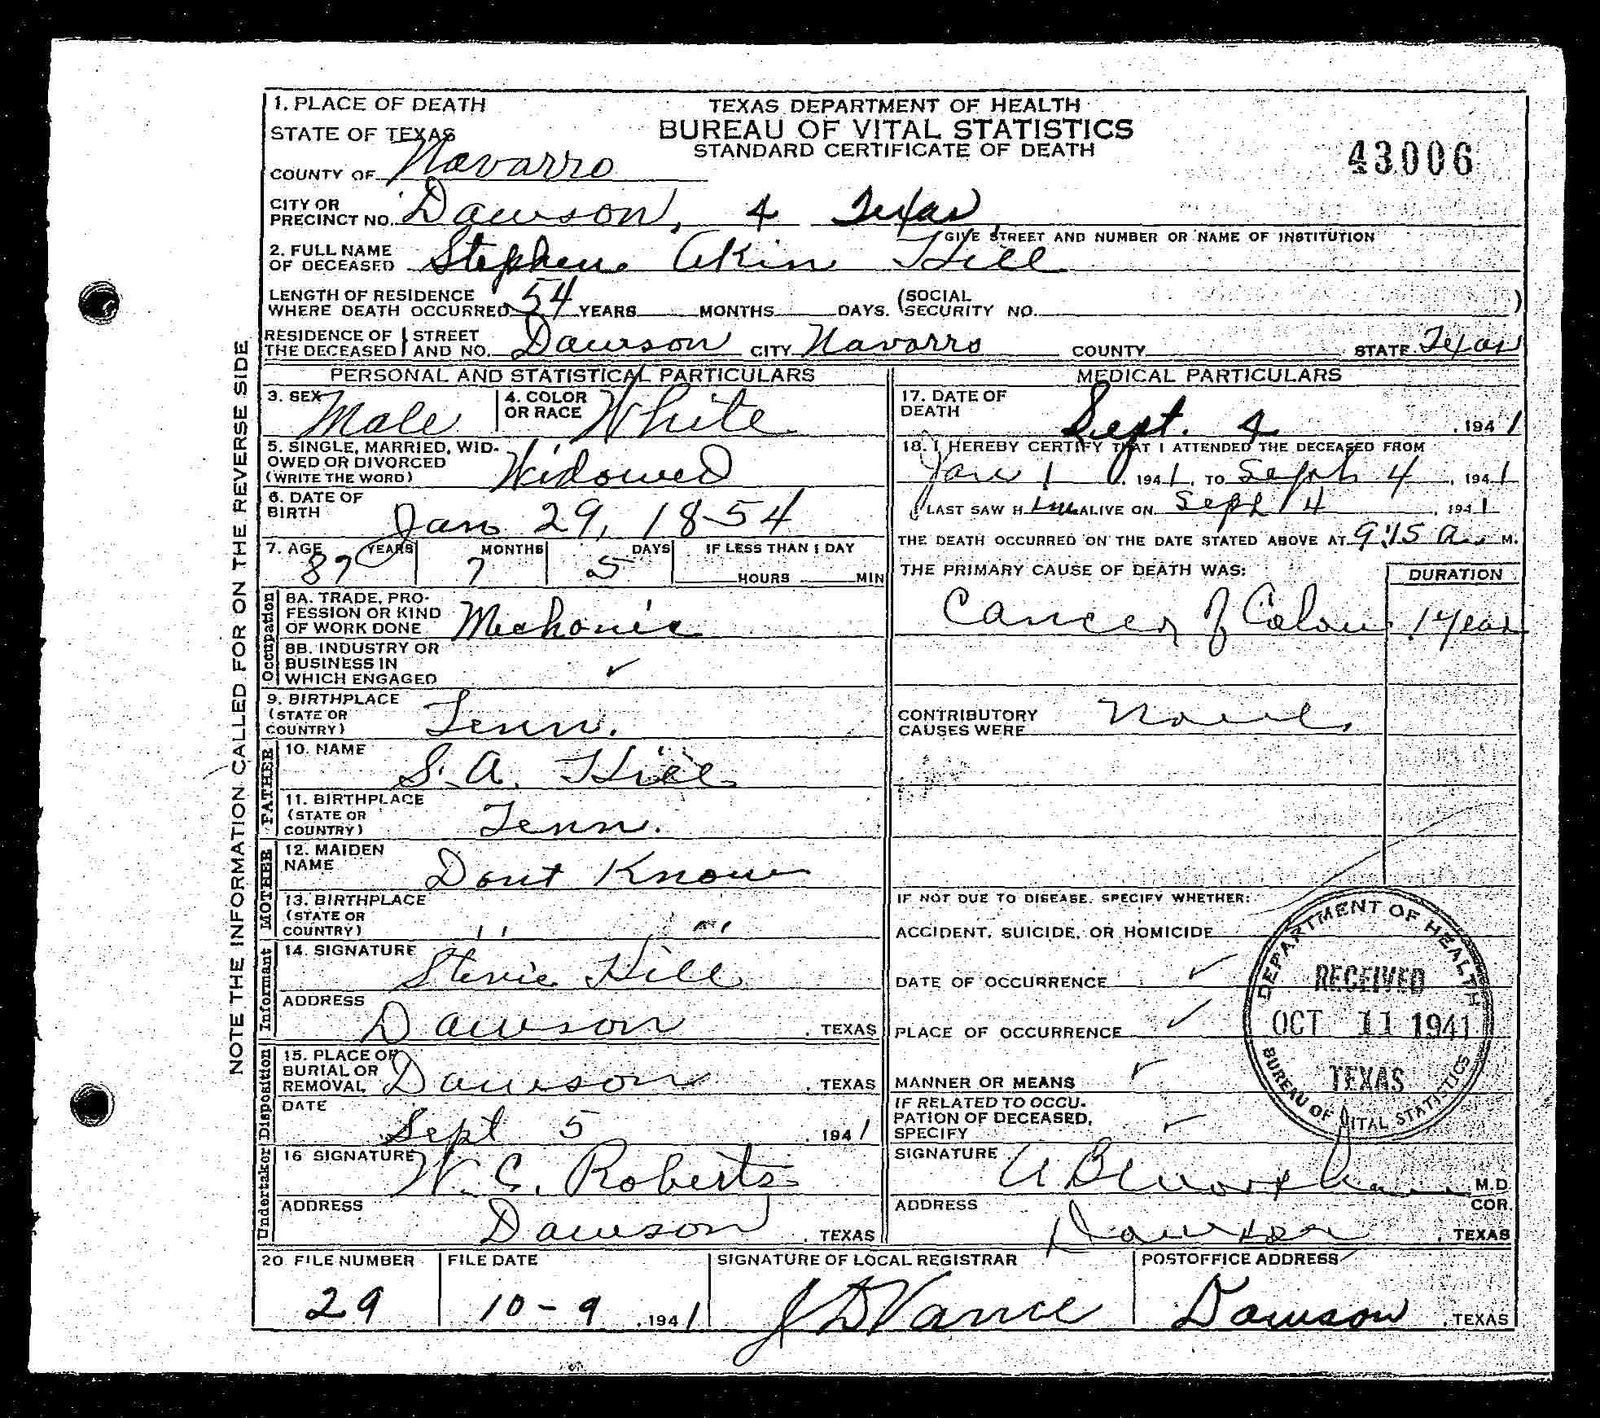 1. PLACE OF DEATH
STATE OF TEXAS
COUNTY OF Navarro
TEXAS DEPARTMENT OF HEALTH
BUREAU OF VITAL STATISTICS
STANDARD CERTIFICATE OF DEATH
43006
CITY OR PRECINCT NO. Dawson, 4 Texas
GIVE STREET AND NUMBER OR NAME OF INSTITUTION
2. FULL NAME OF DECEASED Stephen Akin Hill
LENGTH OF RESIDENCE WHERE DEATH OCCURRED 54 YEARS MONTHS DAYS. (SOCIAL SECURITY NO. )
RESIDENCE OF THE DECEASED STREET AND NO. Dawson CITY Navarro COUNTY STATE Texas
PERSONAL AND STATISTICAL PARTICULARS
3. SEX Male 4. COLOR OR RACE White
5. SINGLE, MARRIED, WIDOWED OR DIVORCED (WRITE THE WORD) Widowed
6. DATE OF BIRTH Jan 29, 1854
7. AGE YEARS MONTHS DAYS IF LESS THAN 1 DAY
87 7 5 HOURS MIN
Occupation
8A. TRADE, PROFESSION OR KIND OF WORK DONE Mechanic
8B. INDUSTRY OR BUSINESS IN WHICH ENGAGED ✓
9. BIRTHPLACE (STATE OR COUNTRY) Tenn.
FATHER
10. NAME S. A. Hill
11. BIRTHPLACE (STATE OR COUNTRY) Tenn.
MOTHER
12. MAIDEN NAME Dont Know
13. BIRTHPLACE (STATE OR COUNTRY) " "
Informant
14. SIGNATURE Stevie Hill
ADDRESS Dawson, TEXAS
Disposition
15. PLACE OF BURIAL OR REMOVAL Dawson, TEXAS
DATE Sept 5, 1941
Undertaker
16 SIGNATURE W. C. Roberts
ADDRESS Dawson, TEXAS
MEDICAL PARTICULARS
17. DATE OF DEATH Sept. 4, 1941
18. I HEREBY CERTIFY THAT I ATTENDED THE DECEASED FROM
Jan 1, 1941, TO Sept 4, 1941
I LAST SAW H im ALIVE ON Sept 4, 1941
THE DEATH OCCURRED ON THE DATE STATED ABOVE AT 9:15 a. M.
THE PRIMARY CAUSE OF DEATH WAS: DURATION
Cancer of Colon 1 year
CONTRIBUTORY CAUSES WERE None
IF NOT DUE TO DISEASE, SPECIFY WHETHER:
ACCIDENT, SUICIDE, OR HOMICIDE
DATE OF OCCURRENCE ✓
PLACE OF OCCURRENCE ✓
MANNER OR MEANS ✓
IF RELATED TO OCCUPATION OF DECEASED, SPECIFY ✓
SIGNATURE M.D.
COR.
ADDRESS Dawson, TEXAS
DEPARTMENT OF HEALTH
RECEIVED
OCT 11 1941
TEXAS
BUREAU OF VITAL STATISTICS
20 FILE NUMBER FILE DATE SIGNATURE OF LOCAL REGISTRAR POSTOFFICE ADDRESS
29 10-9, 1941 J D Vance Dawson, TEXAS
NOTE THE INFORMATION CALLED FOR ON THE REVERSE SIDE